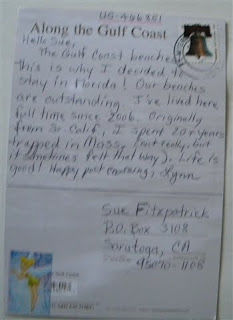 US-466351
Along the Gulf Coast
Hello Sue,
The Gulf Coast beaches
this is why I decided to
stay in Florida! Our beaches
are outstanding. I've lived here
full time since 2006. Originally
from So. Calif, I spent 20+ years
trapped in Mass. (not really, but
it sometimes felt that way). Life is
good! Happy post crossing, Lynn
Sue Fitzpatrick
P.O. Box 3108
Saratoga, CA
95070-1108